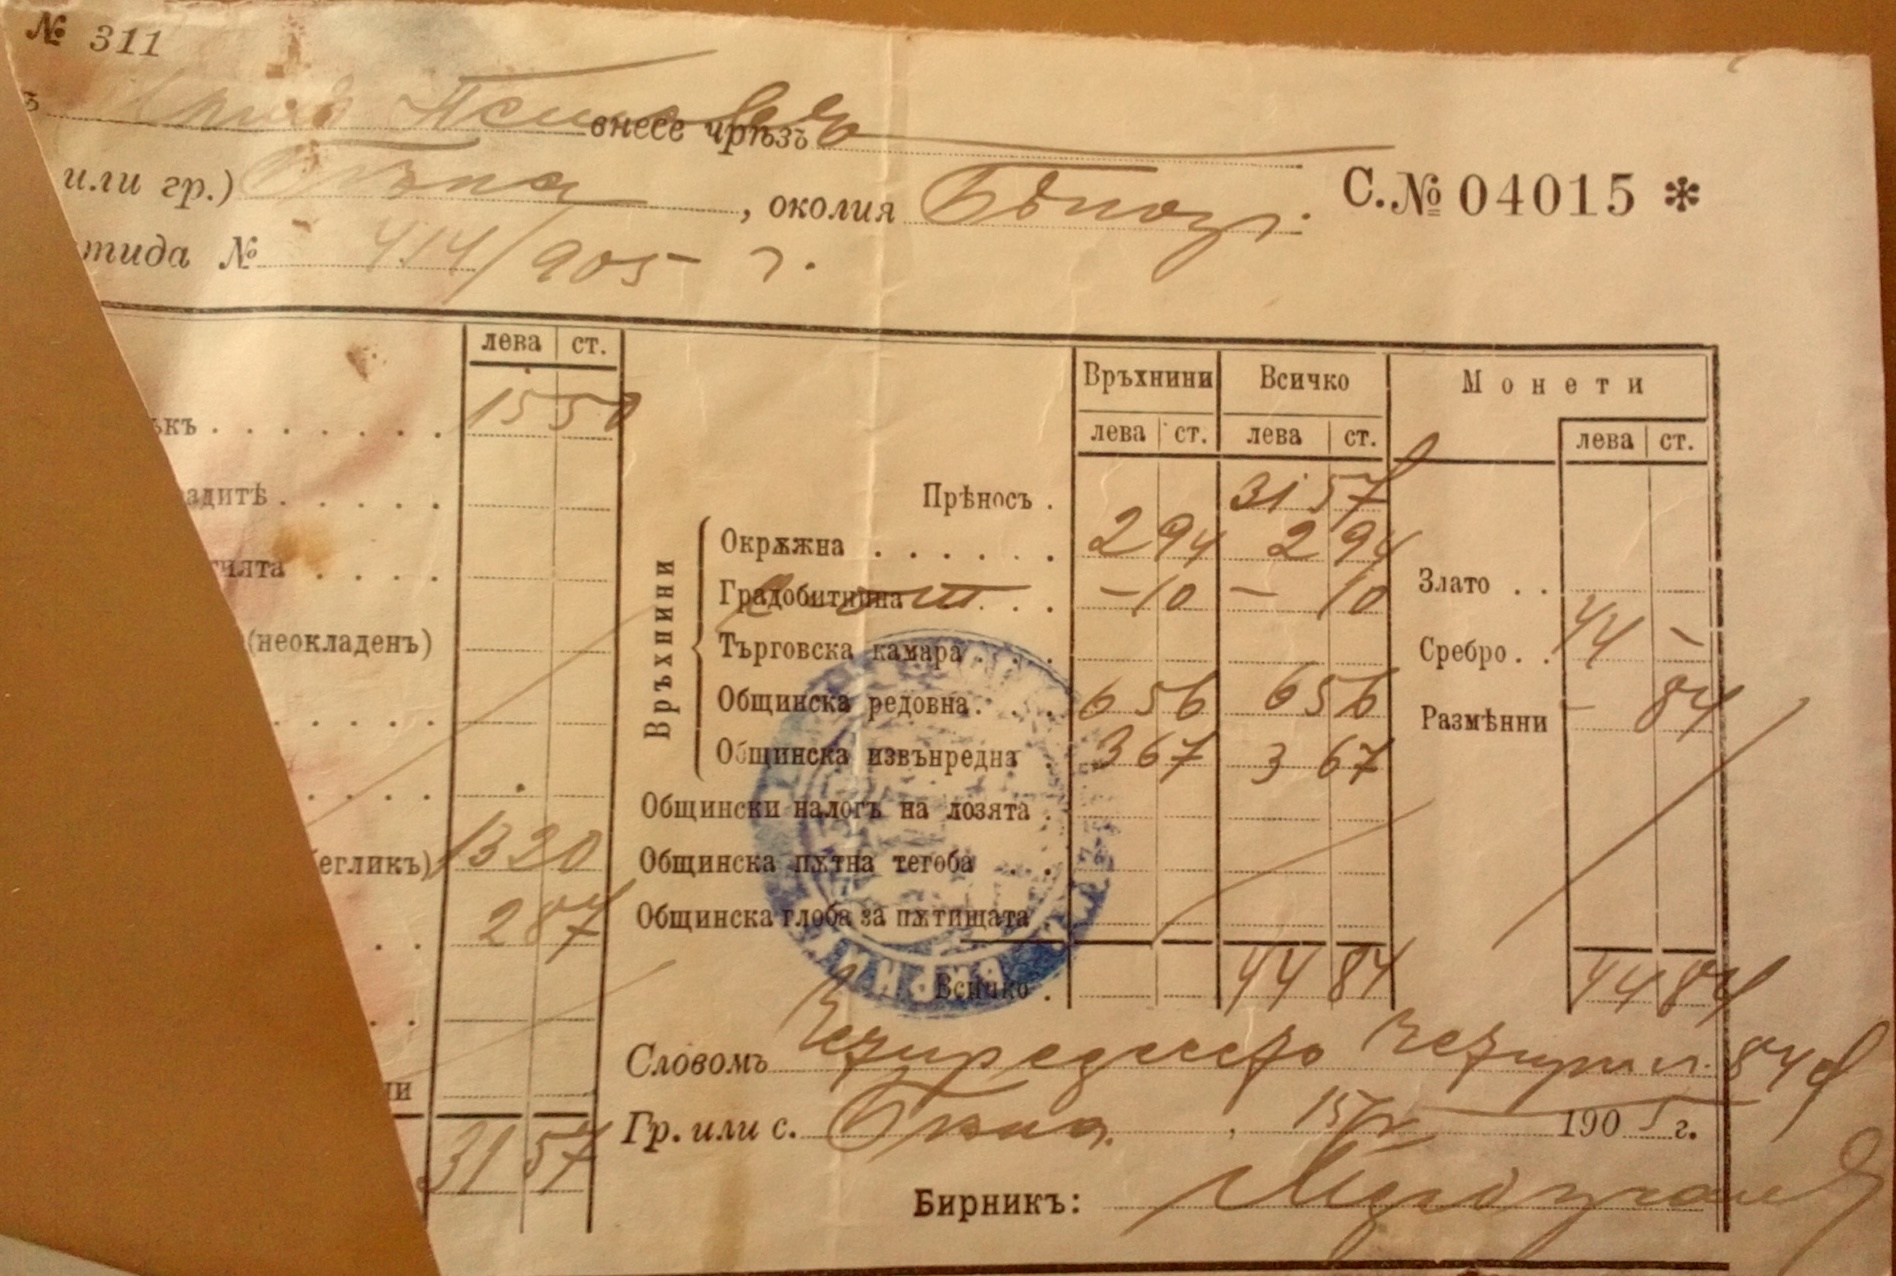 № 311
внесе чрѣзъ
или гр.) Бѣла, околия Бѣло С.№ 04015 *
тида № 414/905 г.
лева ст.
Врьхнини Всичко Монети
лева ст. лева ст. лева ст.
ькъ 15 50
Прѣносъ 31 57
адитѣ
Врьхнини
Окрѫжна 2 94 2 94
Градобитнина – 10 – 10
Злато
(неокладенъ)
Търговска камара
Сребро 44 –
Общинска редовна 6 56 6 56
Размѣнни – 84
Общинска извънредна 3 67 3 67
Общински налогъ на лозята
беглікъ) 13 20
Общинска пѫтна тегоба
2 87
Общинска глоба за пѫтищата
Всичко 44 84 44 84
БИРНИК
Словомъ Четиредесетъ четири л. 84
31 57
Гр. или с. Бѣла, 15/V 1905 г.
Бирникъ: